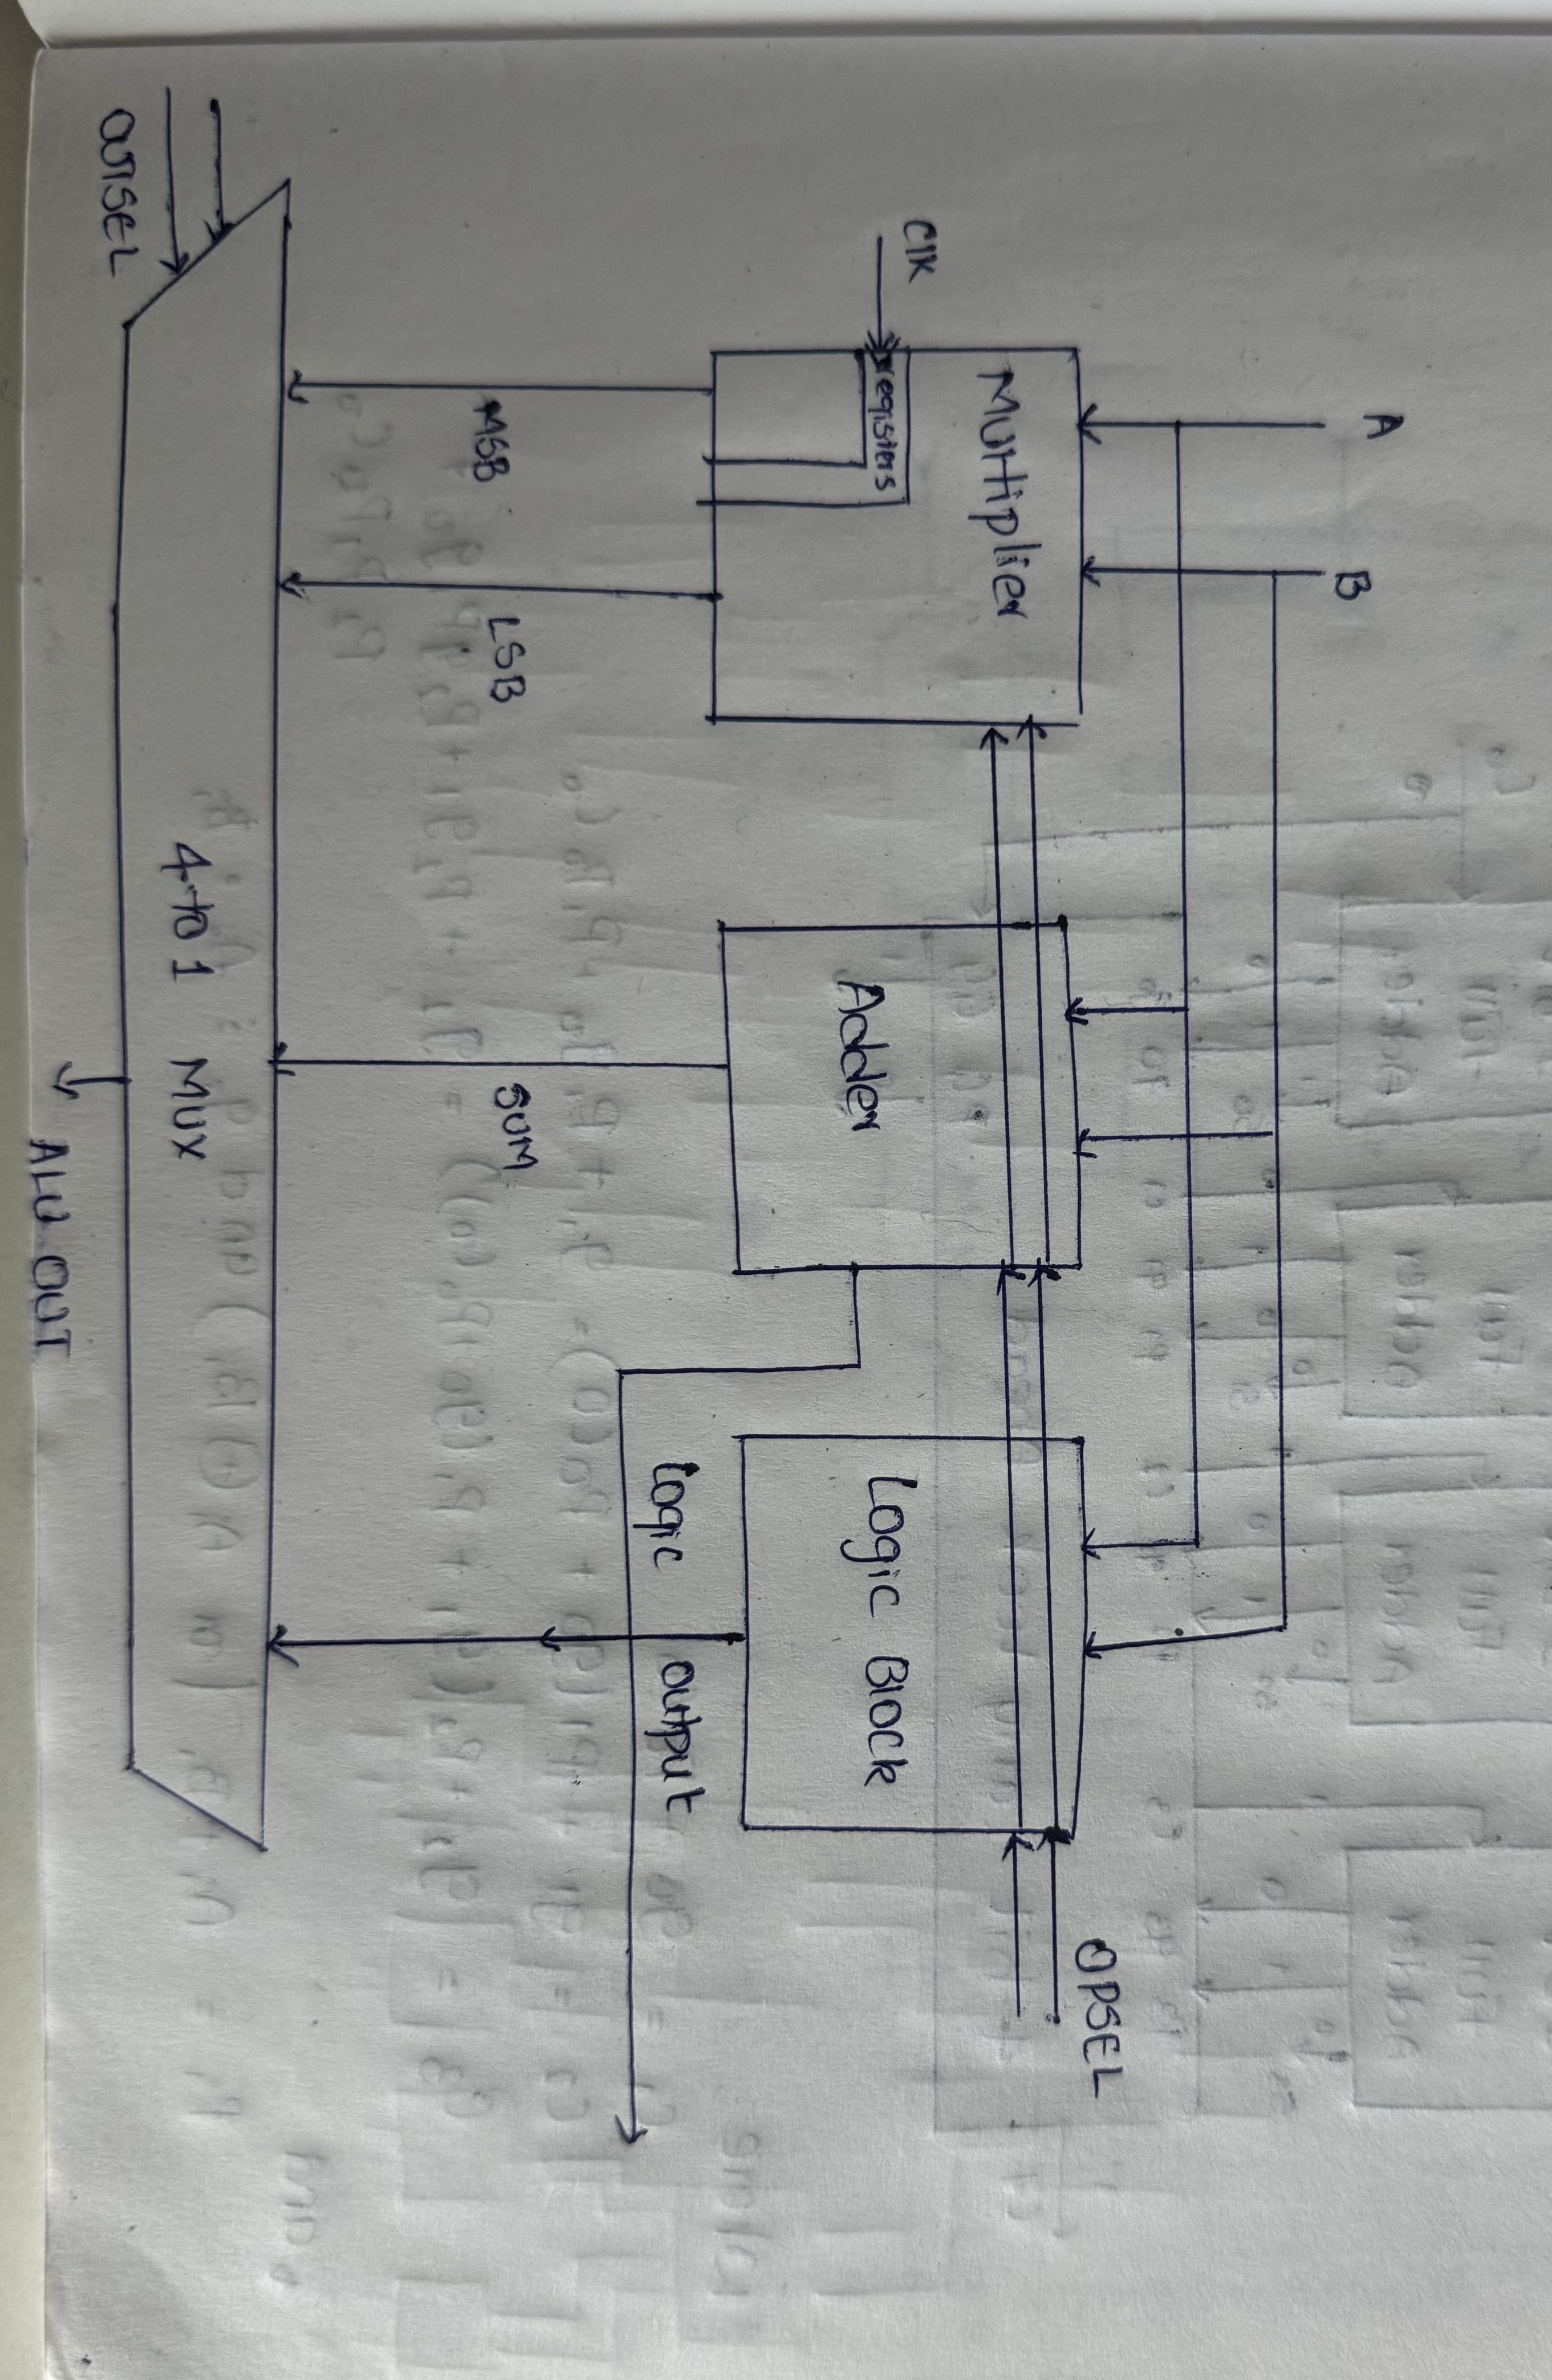 A
B
OPSEL
Multiplier
Clk
registers
Adder
Logic Block
Logic output
MSB
LSB
SUM
4 to 1 MUX
OUTSEL
ALU OUT